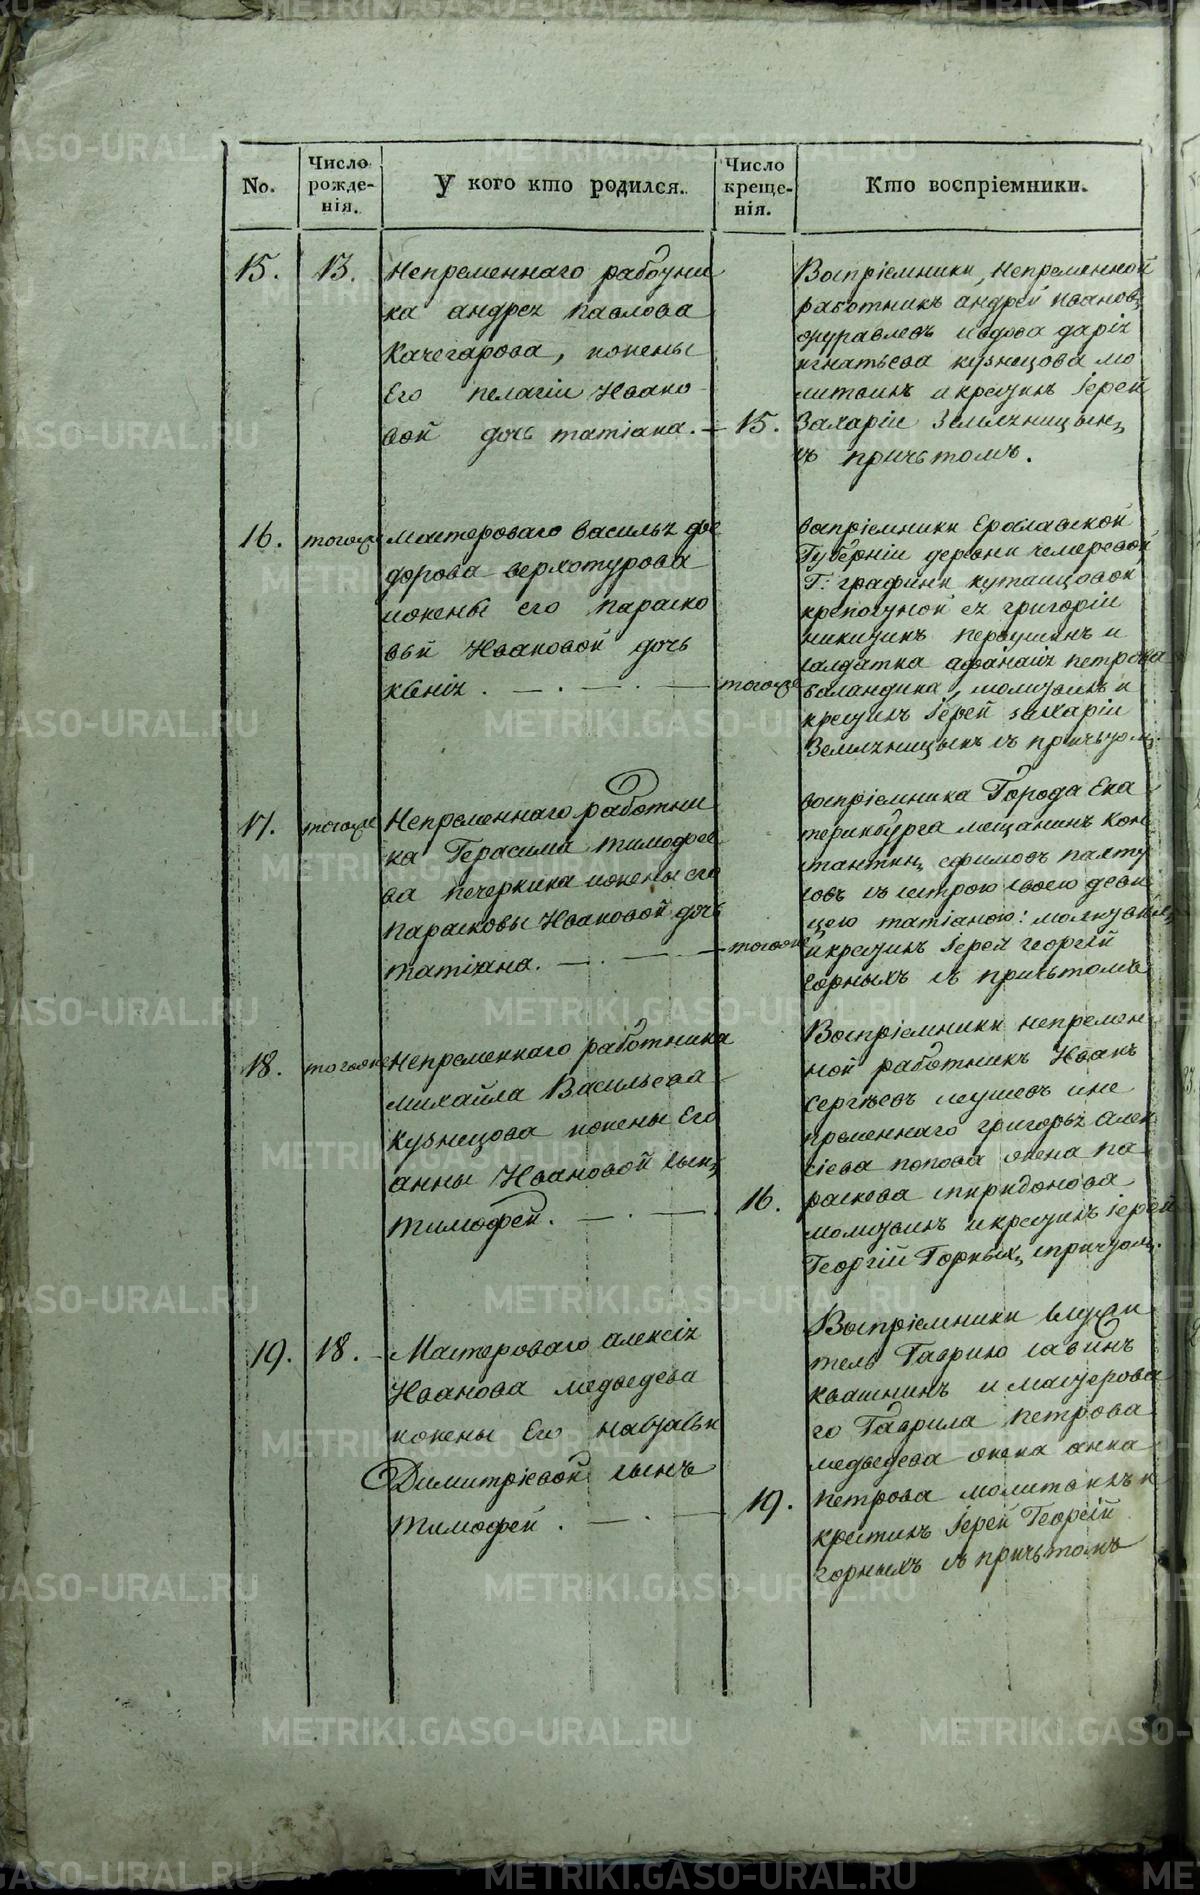 No.
Число рожде- нія.
У кого кто родился.
Число креще- нія.
Кто воспріемники.
15.
13.
Непременнаго работни
ка андрея павлова
Качегарова, ижены
Его пелагіи Ивано-
вой дочь татіана. —
15.
Воспріемники, непременной
работникъ андрей Ивановъ
журавлевъ ивдова дарія
игнатьева кузнецова мо
литвилъ икрестилъ Іерей
Захаріи Земляницынъ
съ причьтомъ.
16.
тогоже
мастероваго василья фе
дорова верхотурова
ижены его параско
вьи Ивановой дочь
тогоже
воспріемники Ерославской
Губерніи деревни
Г: графини кутаисцовой
григоріи
никитинъ первушинъ и
салдатка афанасія петрова
баландина, молитвилъ и
крестилъ Іерей захаріи
Земляницынъ съ причьтом.
17.
тогоже
Непременнаго работни
ка Герасима тимофее
ва печеркина ижены его
парасковьи Ивановой дочь
татіана. —
тогоже
воспріемника Города Ека
теринбурга мещанинъ Кон
стантинъ ефимовъ пахту
совъ съ сестрою своею деви
цею татіаною: молитвилъ
икрестилъ Іерей георгій
Горныхъ съ причьтомъ
18.
тогоже
Непременнаго работника
михайла Васильева
кузнецова ижены Его
анны Ивановой сынъ
тимофей. —
16.
Воспріемники непремен
ной работникъ Иванъ
Сергѣевъ ине
пременнаго григорья алек
сіева попова жена па
расковья спиридонова
молитвилъ икрестилъ іерей
Георгій Горныхъ спричтом.
19.
18.
Мастероваго алексія
Иванова медведева
ижены Его
Димитріевой сынъ
тимофей. —
19.
Воспріемники служи
тель Гаврило савинъ
квашнинъ и мастерова
го Гаврила петрова
медведева жена анна
петрова молитвилъ и
крестилъ Іерей Георгій
горныхъ съ причьтомъ
METRIKI.GASO-URAL.RU